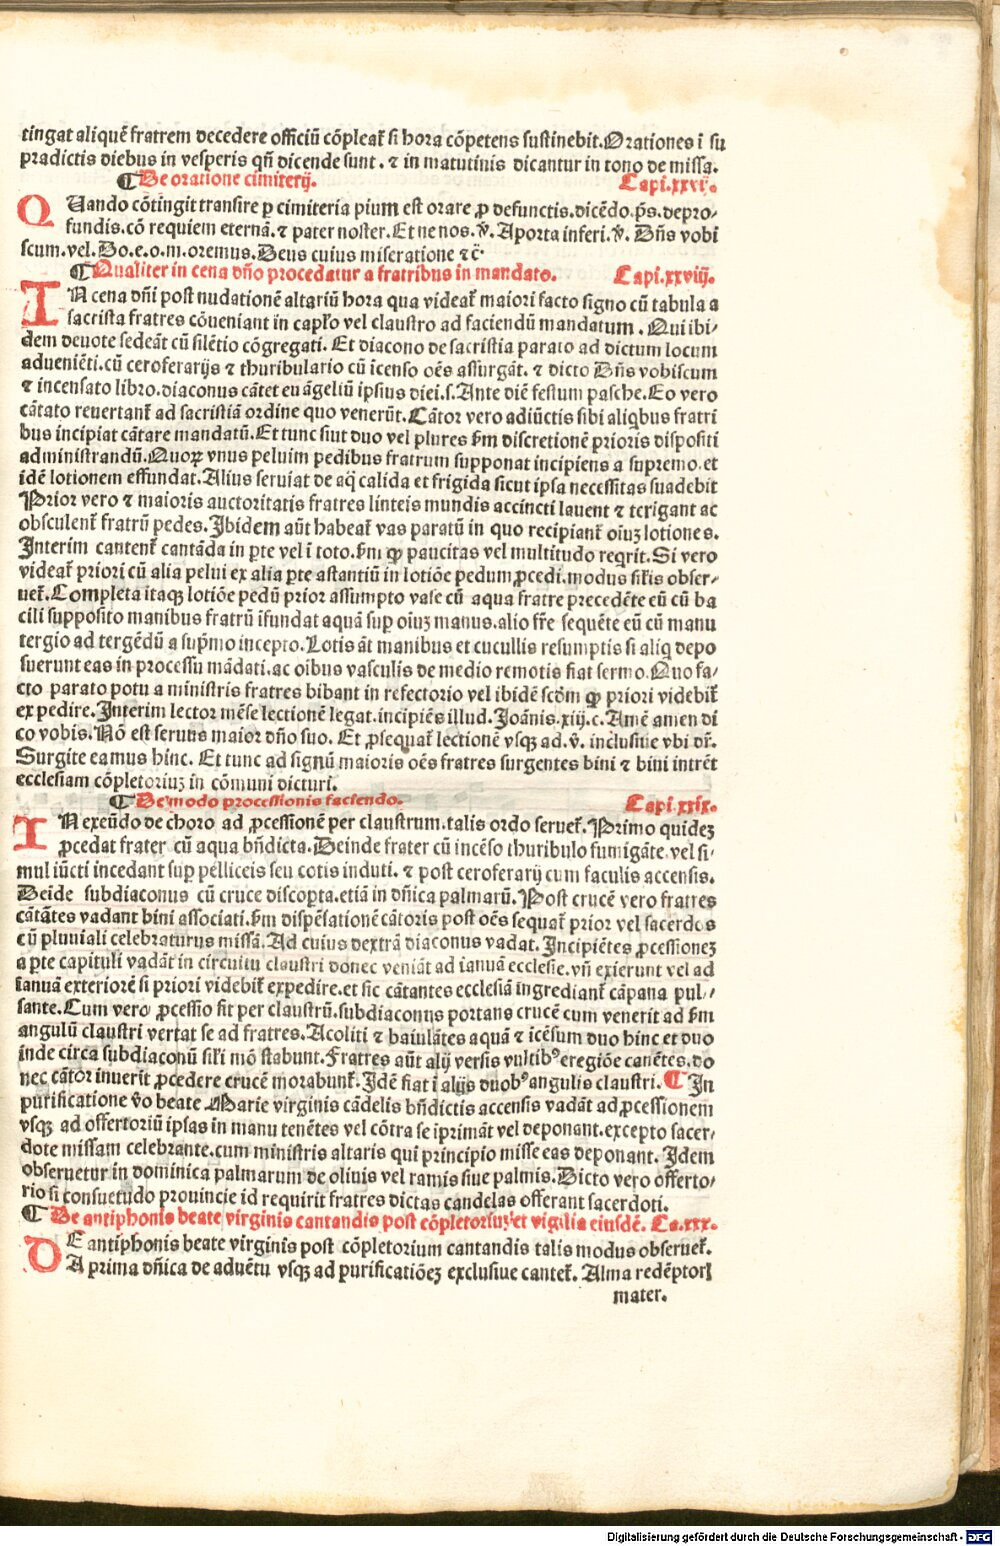 tingat aliquē fratrem decedere officiū cōpleat̄ si hora cōpetens sustinebit. Orationes ī su
pradictis diebus in vesperis qn̄ dicende sunt. ⁊ in matutinis dicantur in tono de missa.
¶ De oratione cimiterij. Capi.xxvij.
QUando cōtingit transire ꝑ cimiteria pium est orare ꝓ defunctis. dicēdo. ps̄. de pro⸗
fundis. cō requiem eternā. ⁊ pater noster. Et ne nos. v̄. A porta inferi. v̄. Dn̄s vobi
scum. vel. Do. e. o. m. oremus. Deus cuius miseratione ⁊c̄.
¶ Qualiter in cena dn̄o procedatur a fratribus in mandato. Capi.xxviij.
IN cena dn̄i post nudationē altariū hora qua videat̄ maiori facto signo cū tabula a
sacrista fratres cōueniant in capl̄o vel claustro ad faciendū mandatum. Qui ibi⸗
dem deuote sedeāt cū silētio cōgregati. Et diacono de sacristia parato ad dictum locum
adueniēti. cū ceroferarijs ⁊ thuribulario cū icenso oēs assurgāt. ⁊ dicto Dn̄s vobiscum
⁊ incensato libro. diaconus cātet euāgeliū ipsius diei. s. Ante diē festum pasche. Eo vero
cātato reuertant̄ ad sacristiā ordine quo venerūt. Cātor vero adiūctis sibi aliqbus fratri
bus incipiat cātare mandatū. Et tunc siut duo vel plures ẜm discretionē prioris dispositi
ad ministrandū. Quoꝝ vnus peluim pedibus fratrum supponat incipiens a supremo. et
idē lotionem effundat. Alius seruiat de aq̄ calida et frigida sicut ipsa necessitas suadebit
Prior vero ⁊ maioris auctoritatis fratres linteis mundis accincti lauent ⁊ terigant ac
obsculent̄ fratrū pedes. Ibidem aūt habeat̄ vas paratū in quo recipiant̄ oīuꝫ lotiones.
Interim cantent̄ cantāda in ꝑte vel ī toto. ẜm ꝙ paucitas vel multitudo reqrit. Si vero
videat̄ priori cū alia pelui ex alia ꝑte astantiū in lotiōe pedum ꝓcedi. modus sil̄is obser⸗
uet̄. Completa itaqꝫ lotiōe pedū prior assumpto vase cū aqua fratre precedēte eū cū ba
cili supposito manibus fratrū īfundat aquā suꝑ oīuꝫ manus. alio fr̄e sequēte eū cū manu
tergio ad tergēdū a sup̄mo incepto. Lotis āt manibus et cucullis resumptis si aliq depo
suerunt eas in processu mādati. ac oībus vasculis de medio remotis fiat sermo. Quo fa⸗
cto parato potu a ministris fratres bibant in refectorio vel ibidē scd̄m ꝙ priori videbit̄
expedire. Interim lector mēse lectionē legat. incipiēs illud. Joānis. xiij. c. Amē amen di
co vobis. Nō est seruus maior dn̄o suo. Et ꝓsequat̄ lectionē vsqꝫ ad. v̄. inclusiue vbi dr̄.
Surgite eamus hinc. Et tunc ad signū maioris oēs fratres surgentes bini ⁊ bini intrēt
ecclesiam cōpletoriuꝫ in cōmuni dicturi.
¶ De modo processionis faciendo. Capi.xxix.
IN exeūdo de choro ad ꝓcessionē per claustrum. talis ordo seruet̄. Primo quideꝫ
ꝓcedat frater cū aqua bn̄dicta. Deinde frater cū incēso thuribulo fumigāte. vel si⸗
mul iūcti incedant suꝑ pelliceis seu cotis induti. ⁊ post ceroferarij cum faculis accensis.
Deide subdiaconus cū cruce discoꝑta. etiā in dn̄ica palmarū. Post crucē vero fratres
cātātes vadant bini associati. ẜm dispēsationē cātoris post oēs sequat̄ prior vel sacerdos
cū pluuiali celebraturus missā. Ad cuius dextrā diaconus vadat. Incipiētes ꝓcessioneꝫ
a ꝑte capituli vadāt in circuitu claustri donec veniāt ad ianuā ecclesie. vn̄ exierunt vel ad
ianuā exteriorē si priori videbit̄ expedire. et sic cātantes ecclesiā ingrediant̄ cāpana pul⸗
sante. Cum vero ꝓcessio fit per claustrū. subdiaconus portans crucē cum venerit ad ẜm
angulū claustri vertat se ad fratres. Acoliti ⁊ baiulātes aquā ⁊ icēsum duo hinc et duo
inde circa subdiaconū sil̄i mō stabunt. Fratres aūt alij versis vultibꝰ e regiōe canētes. do
nec cātor inuerit ꝓcedere crucē morabunt̄. Idē fiat ī alijs duobꝰ angulis claustri. ¶ In
purificatione v̄o beate Marie virginis cādelis bn̄dictis accensis vadāt ad ꝓcessionem
vsqꝫ ad offertoriū ipsas in manu tenētes vel cōtra se iprimāt vel deponant. excepto sacer⸗
dote missam celebrante. cum ministris altaris qui principio misse eas deponant. Idem
obseruetur in dominica palmarum de oliuis vel ramis siue palmis. Dicto vero offerto⸗
rio si consuetudo prouincie id requirit fratres dictas candelas offerant sacerdoti.
¶ De antiphonis beate virginis cantandis post cōpletorium et vigilia eiusdē. Ca.xxx.
DE antiphonis beate virginis post cōpletorium cantandis talis modus obseruet̄.
A prima dn̄ica de aduētu vsqꝫ ad purificatiōeꝫ exclusiue cantet̄. Alma redēptori
mater.
Digitalisierung gefördert durch die Deutsche Forschungsgemeinschaft - DFG